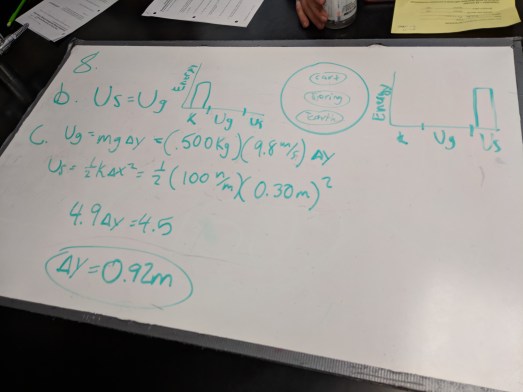 8.
b. Us = Ug
Energy
K Ug Us
cart
spring
Earth
Energy
K Ug Us
c. Ug = mgΔy = (.500kg)(9.8 m/s) Δy
Us = ½kΔx² = ½(100 n/m)(0.30m)²
4.9Δy = 4.5
Δy = 0.92m